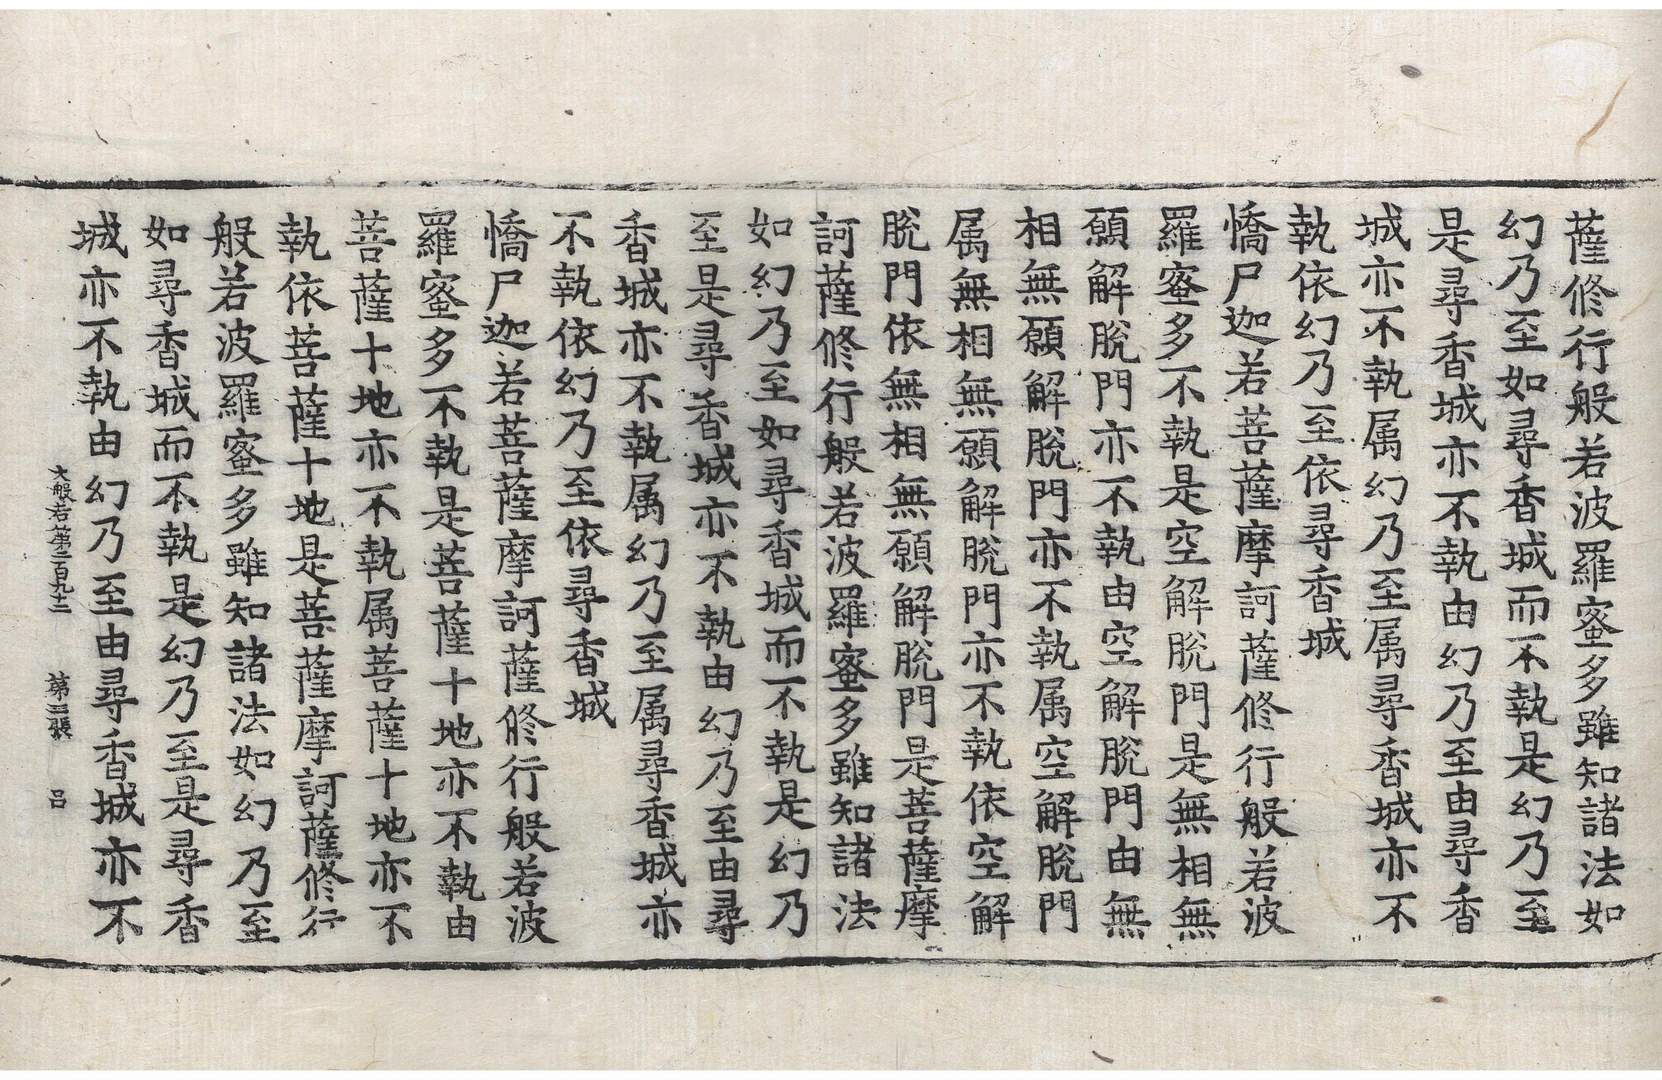 薩修行般若波羅蜜多雖知諸法如
幻乃至如尋香城而不執是幻乃至
是尋香城亦不執由幻乃至由尋香
城亦不執属幻乃至属尋香城亦不
執依幻乃至依尋香城
憍尸迦若菩薩摩訶薩修行般若波
羅蜜多不執是空解脫門是無相無
願解脫門亦不執由空解脫門由無
相無願解脫門亦不執属空解脫門
属無相無願解脫門亦不執依空解
脫門依無相無願解脫門是菩薩摩
訶薩修行般若波羅蜜多雖知諸法
如幻乃至如尋香城而不執是幻乃
至是尋香城亦不執由幻乃至由尋
香城亦不執属幻乃至属尋香城亦
不執依幻乃至依尋香城
憍尸迦若菩薩摩訶薩修行般若波
羅蜜多不執是菩薩十地亦不執由
菩薩十地亦不執属菩薩十地亦不
執依菩薩十地是菩薩摩訶薩修行
般若波羅蜜多雖知諸法如幻乃至
如尋香城而不執是幻乃至是尋香
城亦不執由幻乃至由尋香城亦不
大般若第二百九十二 第二張 呂